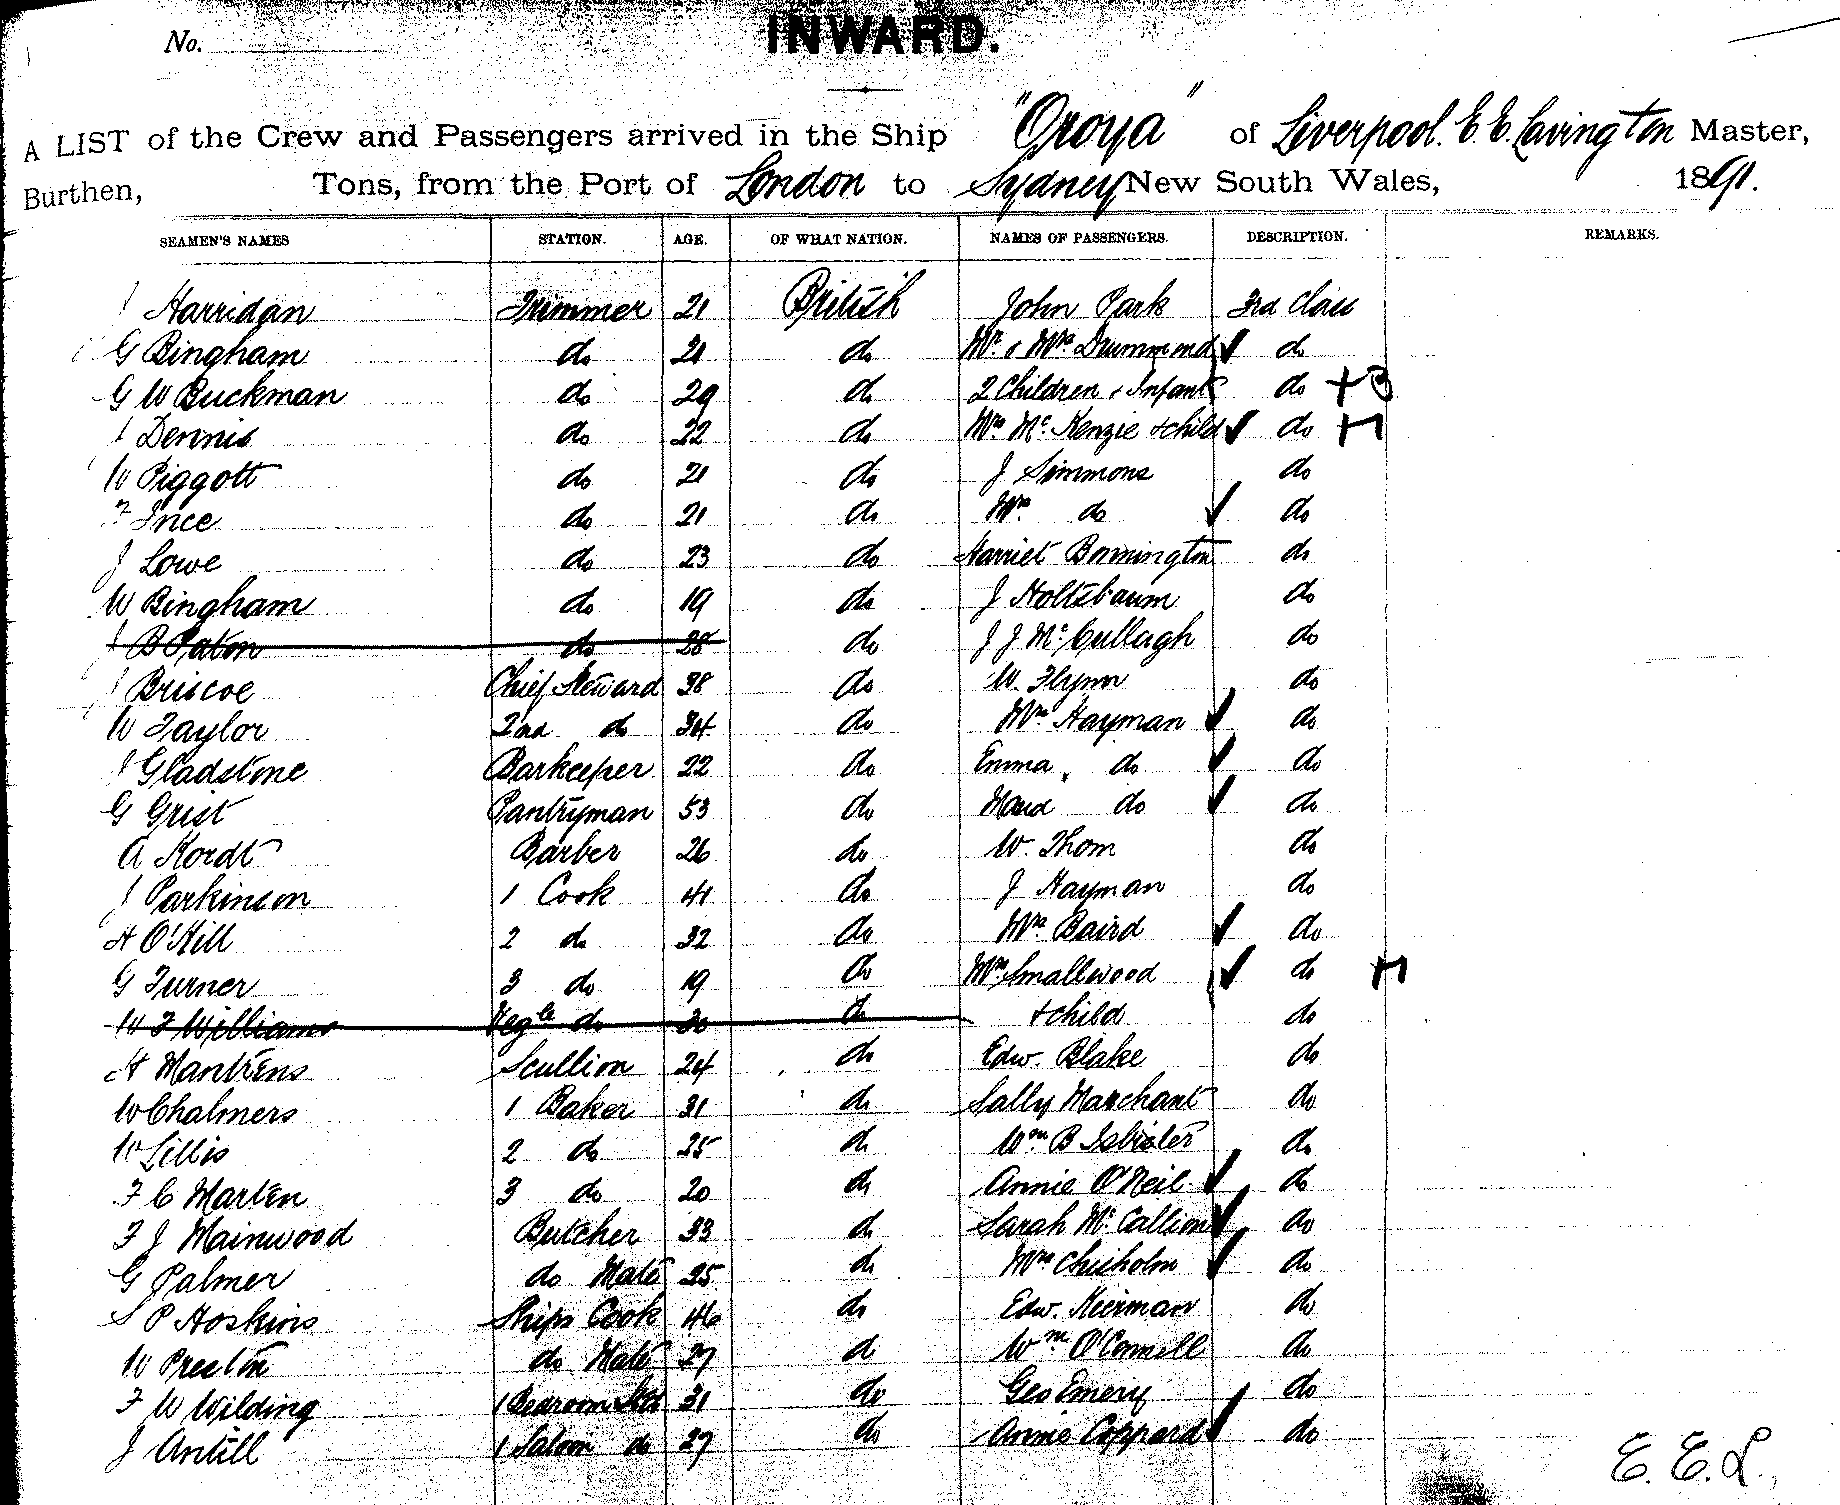 No.
INWARD.
A LIST of the Crew and Passengers arrived in the Ship "Oroya" of Liverpool. E. E. Lavington Master,
Burthen, Tons, from the Port of London to Sydney New South Wales, 1891.
SEAMEN'S NAMES STATION. AGE. OF WHAT NATION. NAMES OF PASSENGERS. DESCRIPTION. REMARKS.
J Harridan Trimmer 21 British John Park 3rd Class
G Bingham do 21 do Mr. & Mrs Drummond do
G W Buckman do 29 do 2 Children & Infant do + 3
J Dennis do 22 do Mrs Mc Kenzie & child do
W Piggott do 21 do J Simmons do
F Ince do 21 do Mrs do do
J Lowe do 23 do Harriet Bonnington do
W Bingham do 19 do J Holtsbaum do
J B Paton do 28 do J J Mc Cullagh do
J Briscoe Chief Steward 38 do W. Flynn do
W Taylor 2nd do 34 do Mrs Hayman do
J Gladstone Barkeeper 22 do Emma do do
G Grist Pantryman 53 do Maud do do
A Kordt Barber 26 do W. Thom do
J Parkinson 1 Cook 41 do J Hayman do
H O'Hill 2 do 32 do Mrs Baird do
G Turner 3 do 19 do Mrs Smallwood do
W F Williams Vegle do 30 do & child do
H Mantrens Scullion 24 do Edw. Blake do
W Chalmers 1 Baker 31 do Sally Marchant do
W Lillis 2 do 25 do Wm B Isbister do
F C Marten 3 do 20 do Annie O'Neil do
F J Mainwood Butcher 33 do Sarah Mc Callion do
G Palmer do Mate 25 do Mrs Chisholm do
S P Hoskins Ships Cook 46 do Edw. Keirman do
W Preston do Mate 27 do Wm O'Connell do
F W Wilding 1 Bedroom Std 31 do Geo Emery do
J Antill 1 Saloon do 27 do Annie Coppard do
E. E. L.